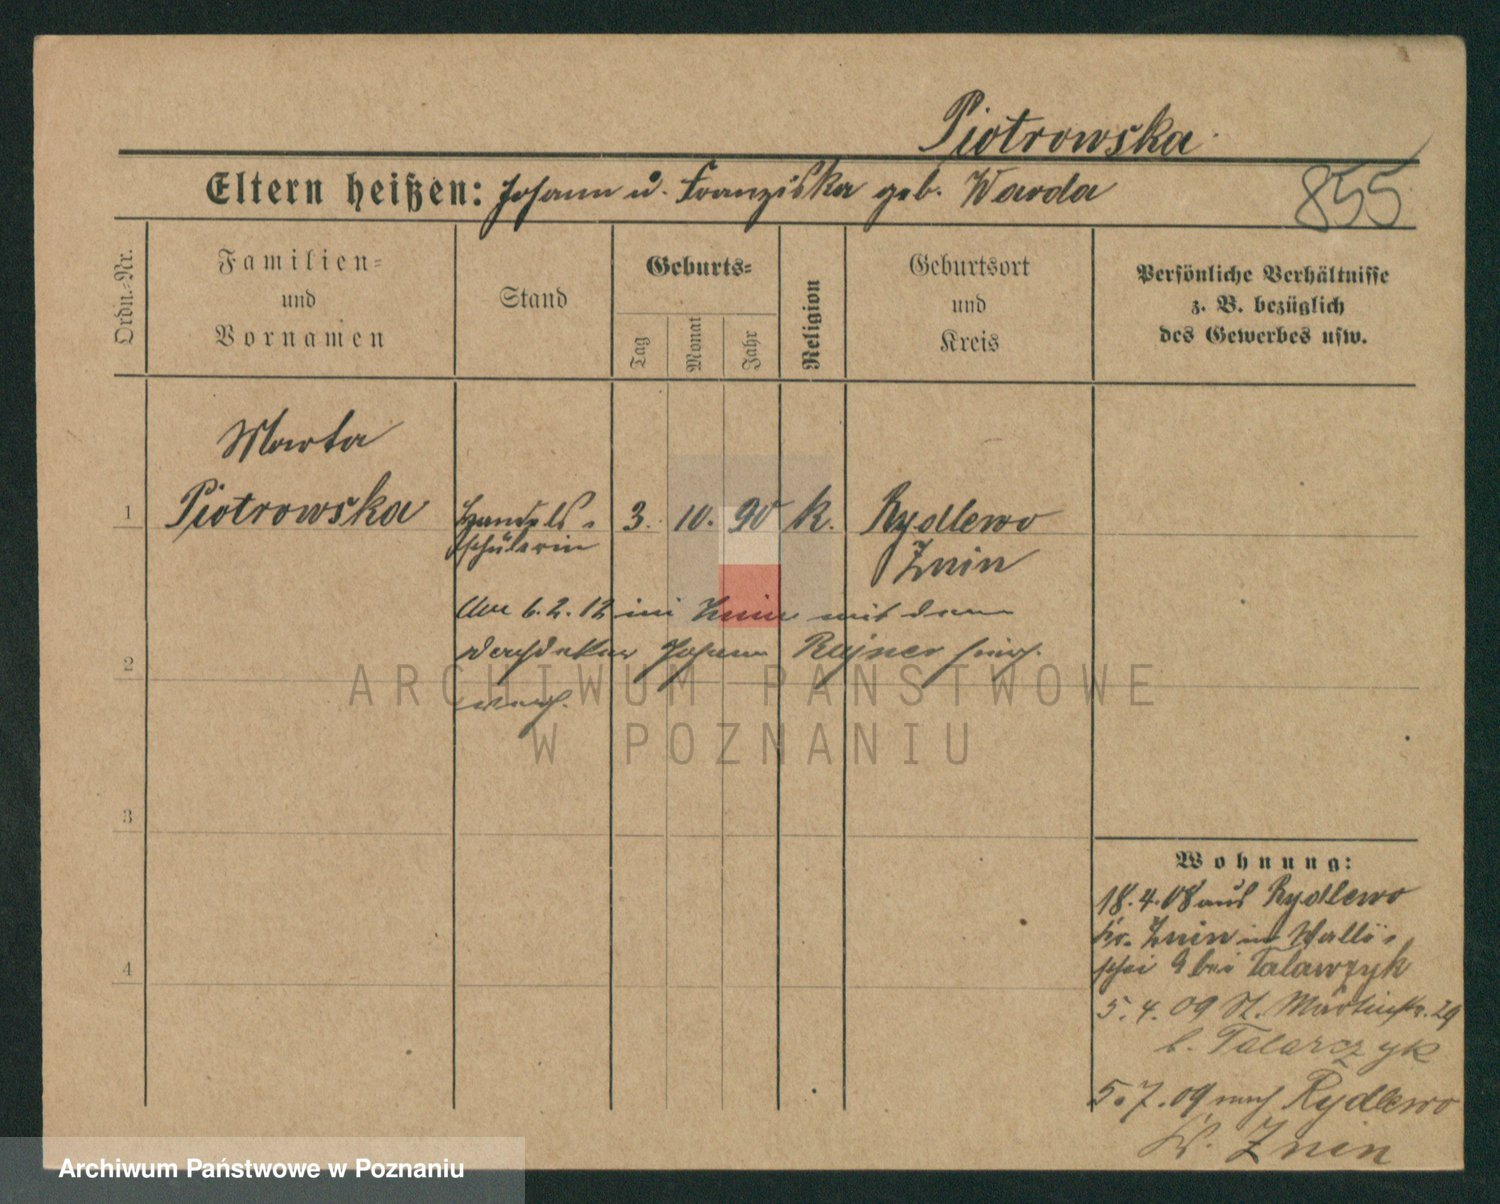 Piotrowska
Eltern heißen: Johann u. Franziska geb. Warda
855
Ordn.-Nr.
Familien-
und
Vornamen
Stand
Geburts-
Tag
Monat
Jahr
Religion
Geburtsort
und
Kreis
Persönliche Verhältnisse
z. B. bezüglich
des Gewerbes usw.
Marta
1 Piotrowska Handels- 3. 10. 90 k. Rydlewo
schülerin Znin
Am 6.2.12 in Znin mit dem
2 Dachdecker Johann Rajner
ARCHIWUM PAŃSTWOWE
W POZNANIU
3
4
Wohnung:
18.4.08 aus Rydlewo
Kr. Znin in Walli-
schei 9 bei Talarczyk
5.4.09 St. Martinstr. 29
b. Talarczyk
5.7.09 nach Rydlewo
Kr. Znin
Archiwum Państwowe w Poznaniu